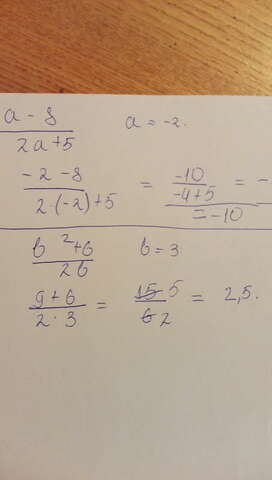 a - 8 / 2a + 5    a = -2.
-2 - 8 / 2·(-2) + 5 = -10 / -4 + 5 = -
= -10
b² + 6 / 2b    b = 3
9 + 6 / 2 · 3 = 15 5 / 6 2 = 2,5.